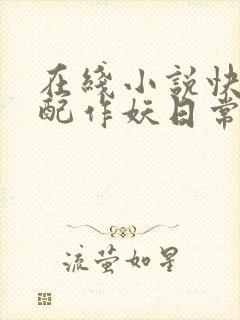 在线小说快
配作妖日常
流萤如星